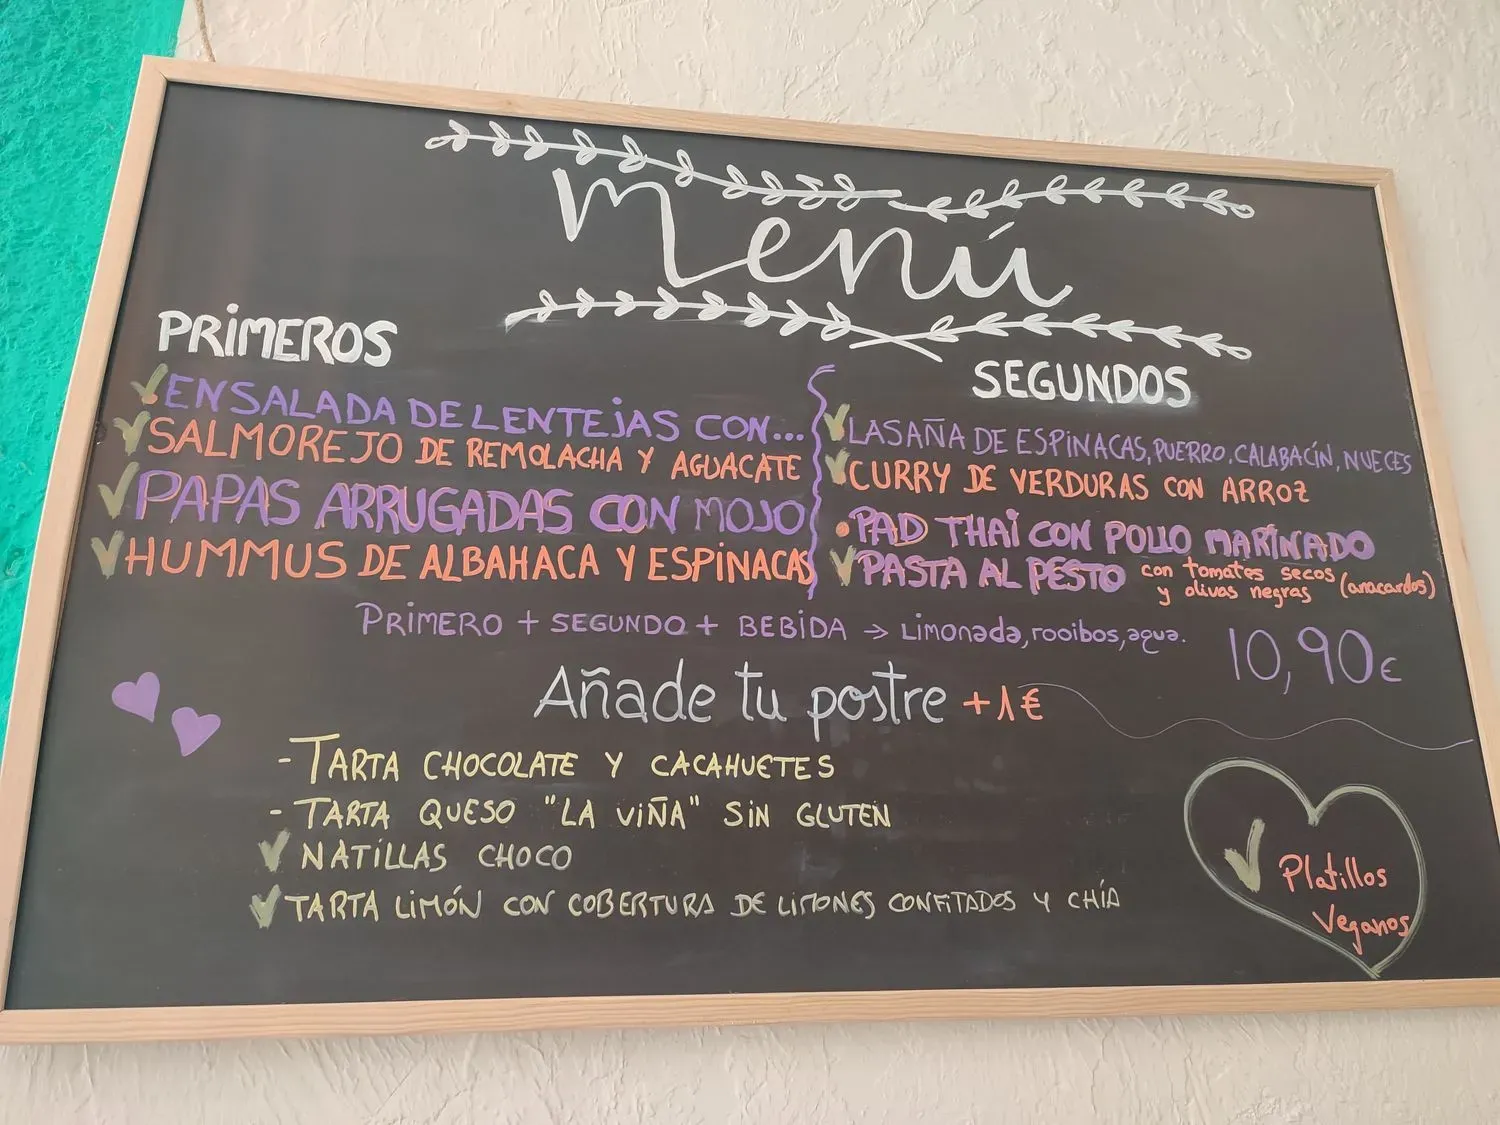 Menú
PRIMEROS
ENSALADA DE LENTEJAS CON...
SALMOREJO DE REMOLACHA Y AGUACATE
PAPAS ARRUGADAS CON MOJO
HUMMUS DE ALBAHACA Y ESPINACAS
SEGUNDOS
LASAÑA DE ESPINACAS, PUERRO, CALABACÍN, NUECES
CURRY DE VERDURAS CON ARROZ
PAD THAI CON POLLO MARINADO
PASTA AL PESTO con tomates secos (anacardos)
y olivas negras
PRIMERO + SEGUNDO + BEBIDA → LIMONADA, rooibos, agua. 10,90€
Añade tu postre +1€
- TARTA CHOCOLATE Y CACAHUETES
- TARTA QUESO "LA VIÑA" SIN GLUTEN
NATILLAS CHOCO
TARTA LIMÓN CON COBERTURA DE LIMONES CONFITADOS Y CHÍA
Platillos
Veganos